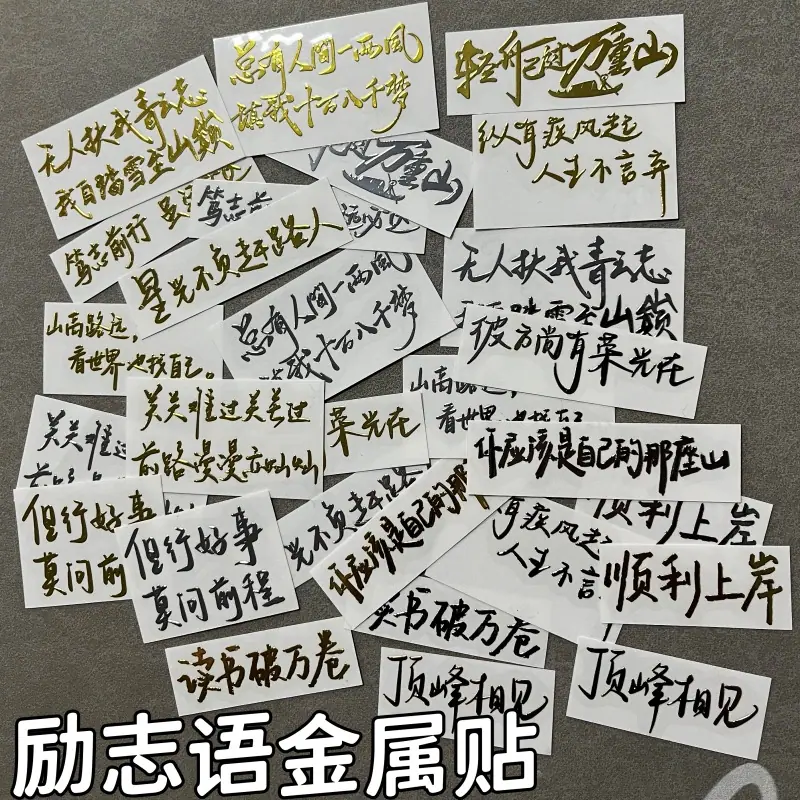 总有人间一两風
填我十万八千梦
轻舟已过万重山
无人扶我青云志
我自踏雪至山巅
纵有疾风起
人生不言弃
万重山
笃志前行 虽
笃志
星光不负赶路人
总有人间一两風
十万八千梦
无人扶我青云志
踏雪至山巅
彼方尚有荣光在
山高路远,
看世界也找自己。
山高路远,
看世界也找自己
关关难过
关关难过关关过
前路漫漫亦灿灿
荣光在
你应该是自己的那座山
但行好事
莫问前
但行好事
莫问前程
光不负赶路
你应该是自己的那
有疾风起
人生不言
顺利上岸
顺利上岸
书破万卷
读书破万卷
顶峰相见
顶峰相见
励志语金属贴